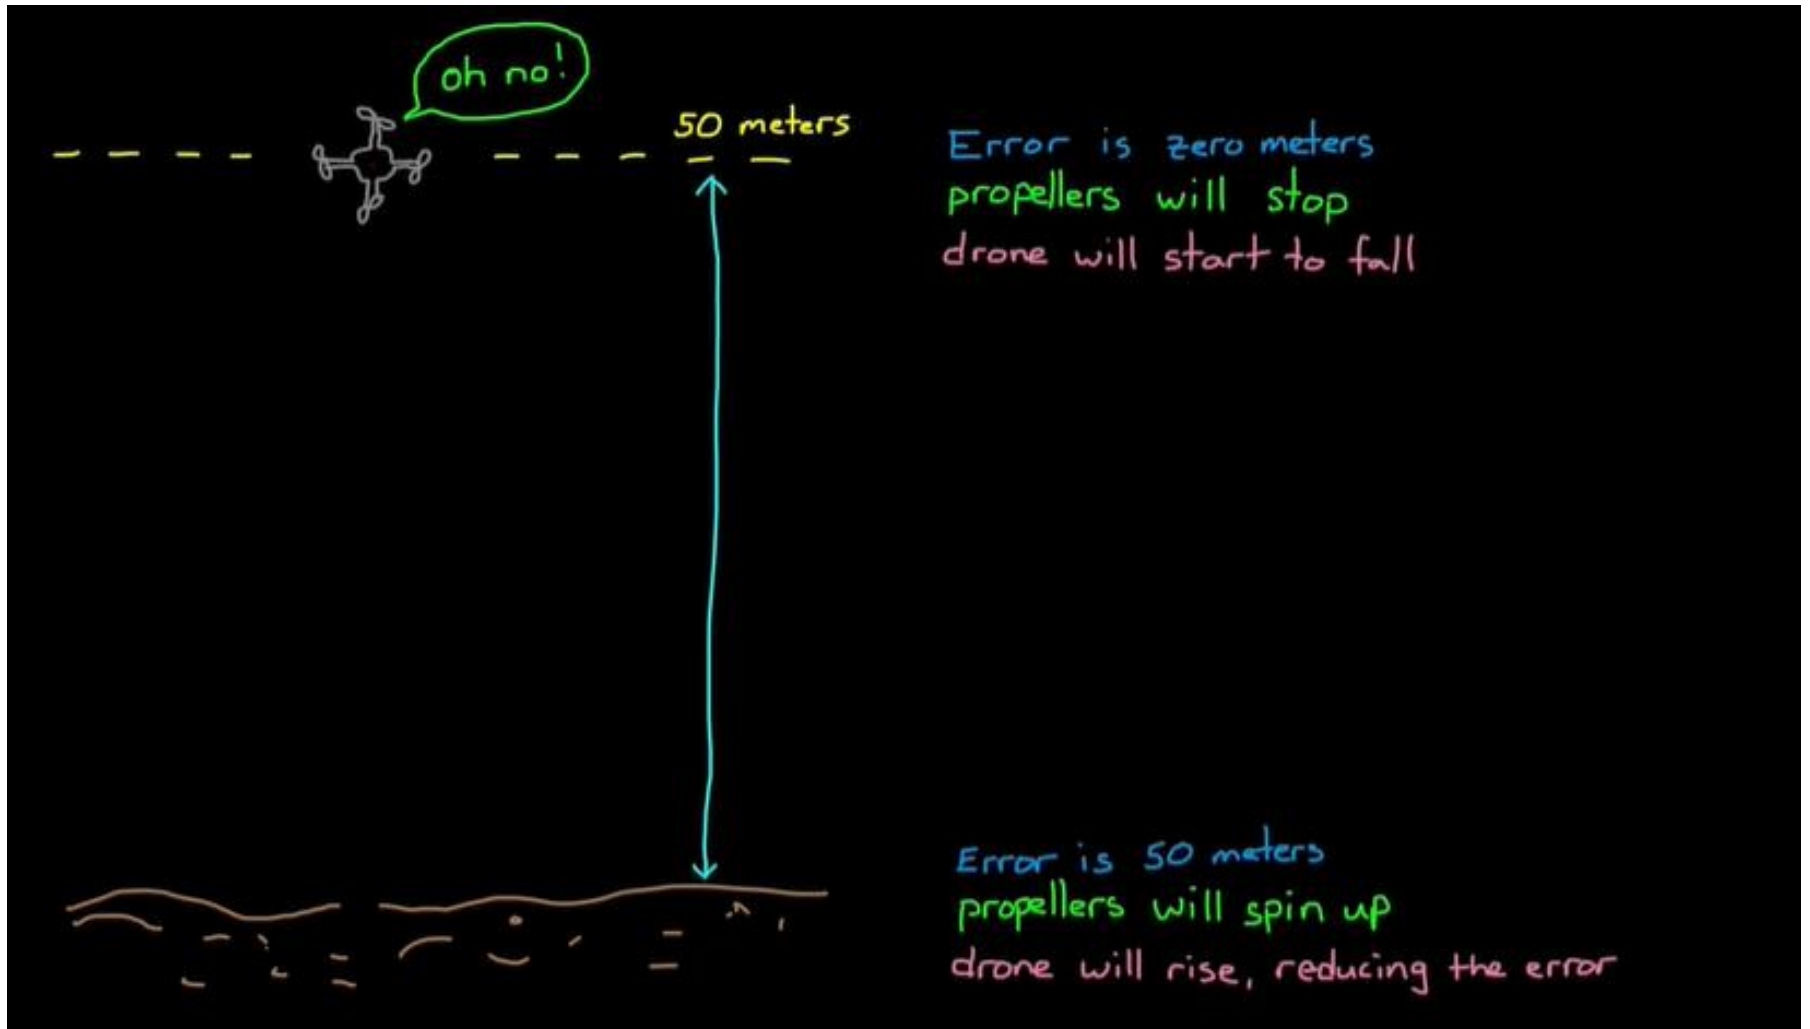 oh no!
50 meters
Error is zero meters
propellers will stop
drone will start to fall
Error is 50 meters
propellers will spin up
drone will rise, reducing the error